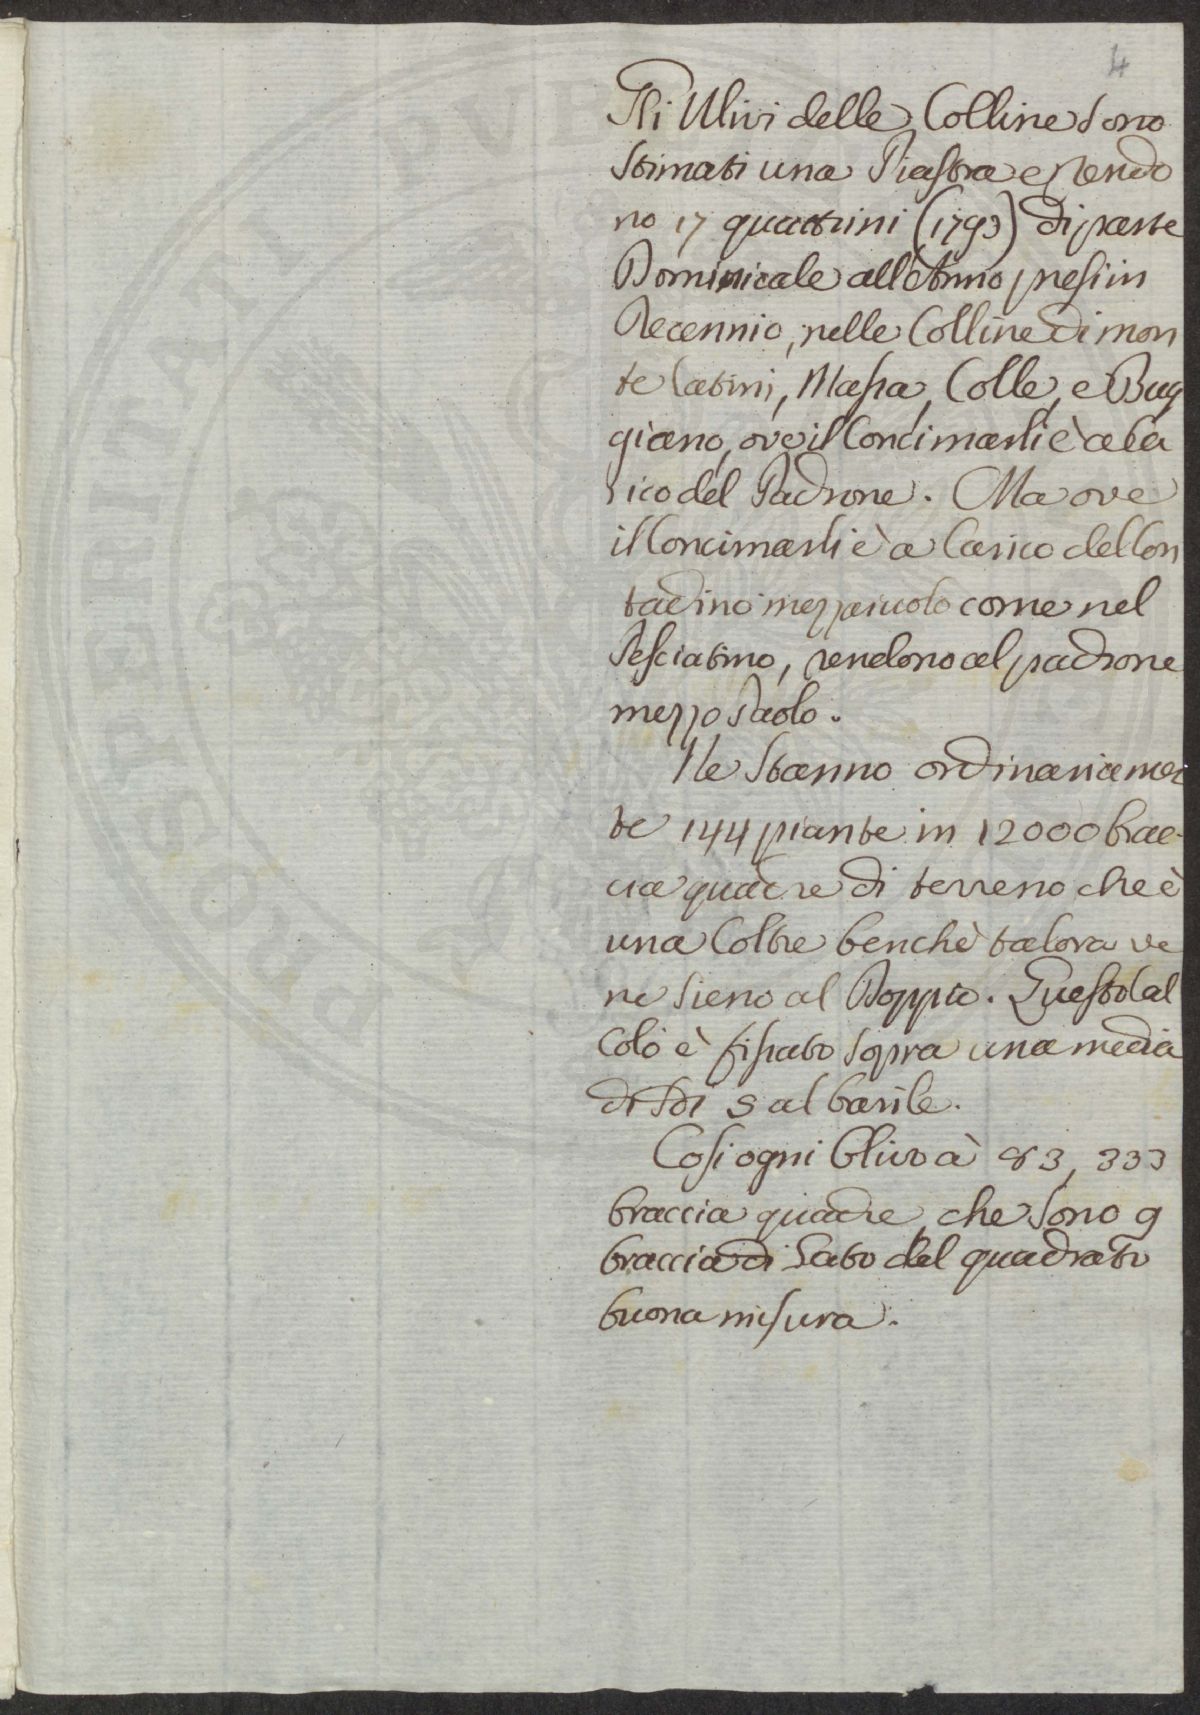 4
Gli Ulivi delle Colline sono
stimati una Piastra e rendo
no 17 quattrini (1793) di parte
Dominicale all'Anno presi in
Decennio, nelle Colline di mon
te Catini, Massa, Colle, e Bug
giano, ove il Concimarli è a Ca
rico del Padrone. Ma ove
il Concimarli è a Carico del Con
tadino mezzaiuolo come nel
Pesciatino, rendono al padrone
mezzo Paolo.
Ne Stanno ordinariamen
te 144 piante in 12000 brac-
cia quadre di terreno che è
una Coltre benchè talora ve
ne sieno al Doppio. Questo Cal
colo è fissato sopra una media
di 5 al barile.
Così ogni Ulivo à 83,333
braccia quadre, che sono 9
braccia di Lato del quadrato
buona misura.